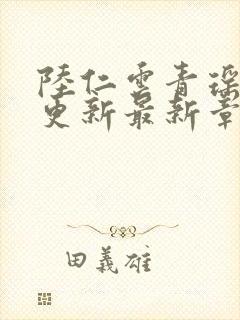 陸仁雲青瑶
更新最新章
田義雄